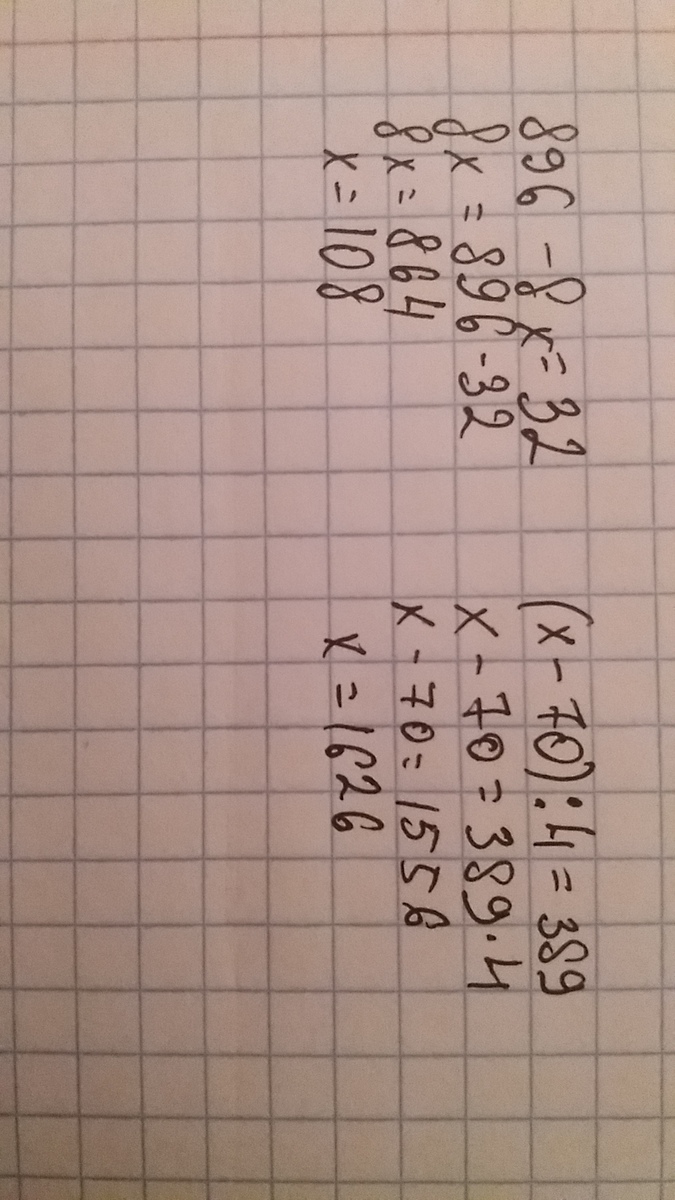 896 - 8x = 32
8x = 896 - 32
8x = 864
x = 108
(x - 70) : 4 = 389
x - 70 = 389 · 4
x - 70 = 1556
x = 1626